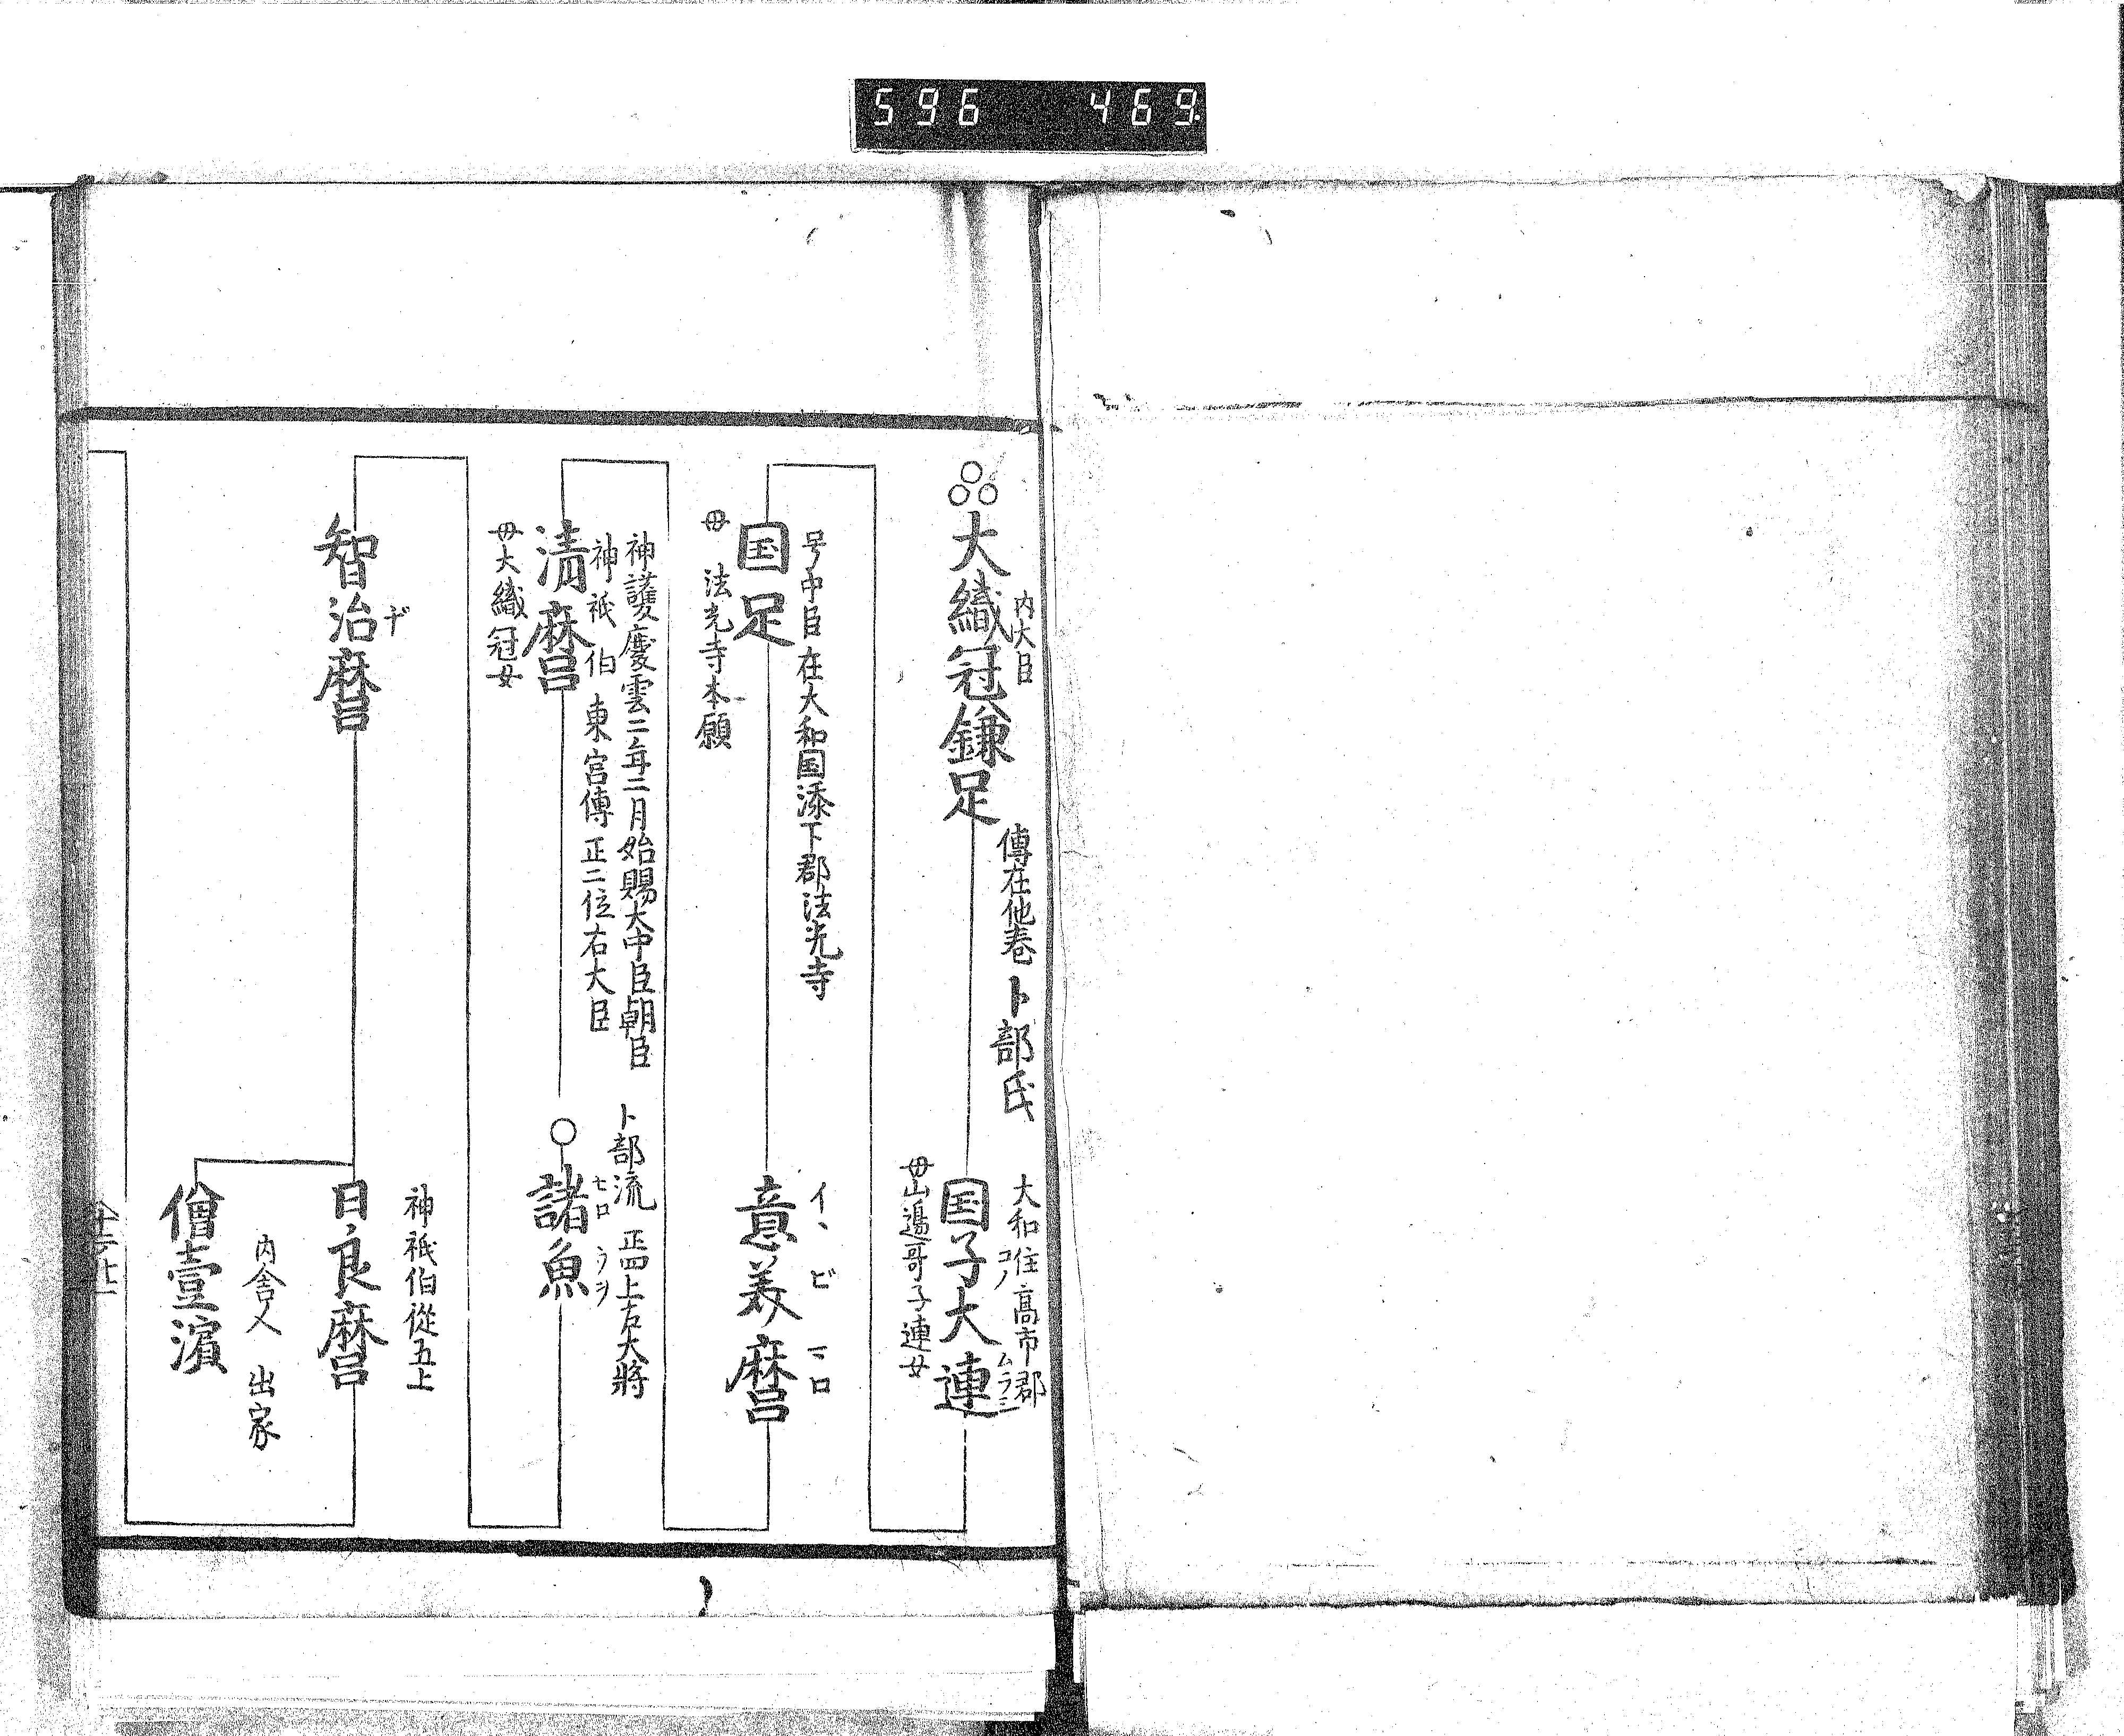 596 469
内大臣
大織冠鎌足
傳在他巻
卜部氏
大和住高市郡
コノ ムラシ
国子大連
毋山邊哥子連女
号中臣在大和国添下郡法光寺
国足
毋 法光寺本願
イヽ ビ マロ
意美麿
神護慶雲二年二月始賜大中臣朝臣
神祇伯 東宮傳正二位右大臣
清麿
毋大織冠女
卜部流 正四上右大將
モロ ウヲ
諸魚
智治麿
神祇伯從五上
日良麿
内舎人 出家
僧壹演